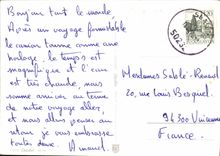 Bonjour tout le monde.
Après un voyage formidable
le camion tourne comme une
horloge. le temps est
magnifique et l'eau
très chaude, nous
somme arriver au terme
de notre voyage aller
et nous allons penser au
retour je vous embrasse
toutes deux.
Mesdames Sablé-Renard
20, rue Louis Besquel.
94300 Vincennes
France.